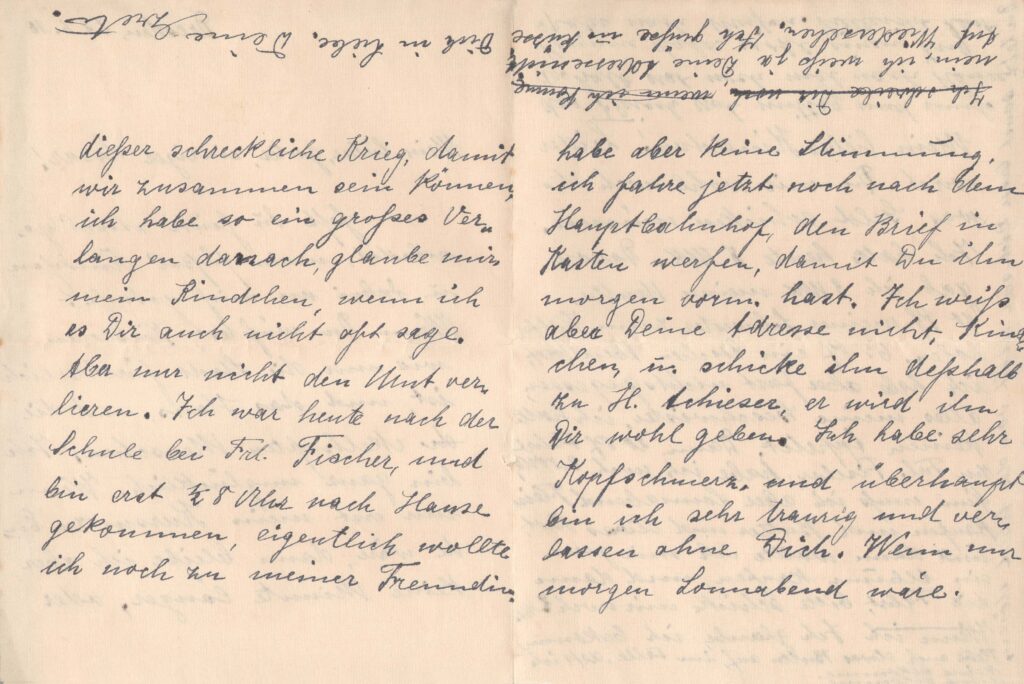 dießer schreckliche Krieg, damit
wir zusammen sein können,
ich habe so ein großes Ver„
langen darnach, glaube mir
mein Kindchen, wenn ich
es Dir auch nicht oft sage.
Aber nur nicht den Mut ver„
lieren. Ich war heute nach der
Schule bei Frl. Fischer, und
bin erst ½ 8 Uhr nach Hause
gekommen, eigentlich wollte
ich noch zu meiner Freundin,
habe aber keine Stimmung,
ich fahre jetzt noch nach dem
Hauptbahnhof, den Brief in
Kasten werfen, damit Du ihn
morgen vorm. hast. Ich weiß
aber Deine Adresse nicht, Kind„
chen, u. schicke ihn deßhalb
zu H. Schieser, er wird ihn
Dir wohl geben. Ich habe sehr
Kopfschmerz. und überhaupt
bin ich sehr traurig und ver„
lassen ohne Dich. Wenn nur
morgen Sonnabend wäre.
Ich schreibe Dir noch, wenn ich komme,
nein, ich weiß ja Deine Adresse nicht.
Auf Wiedersehen, Ich grüße u. küsse
Dich in Liebe. Deine Grete.